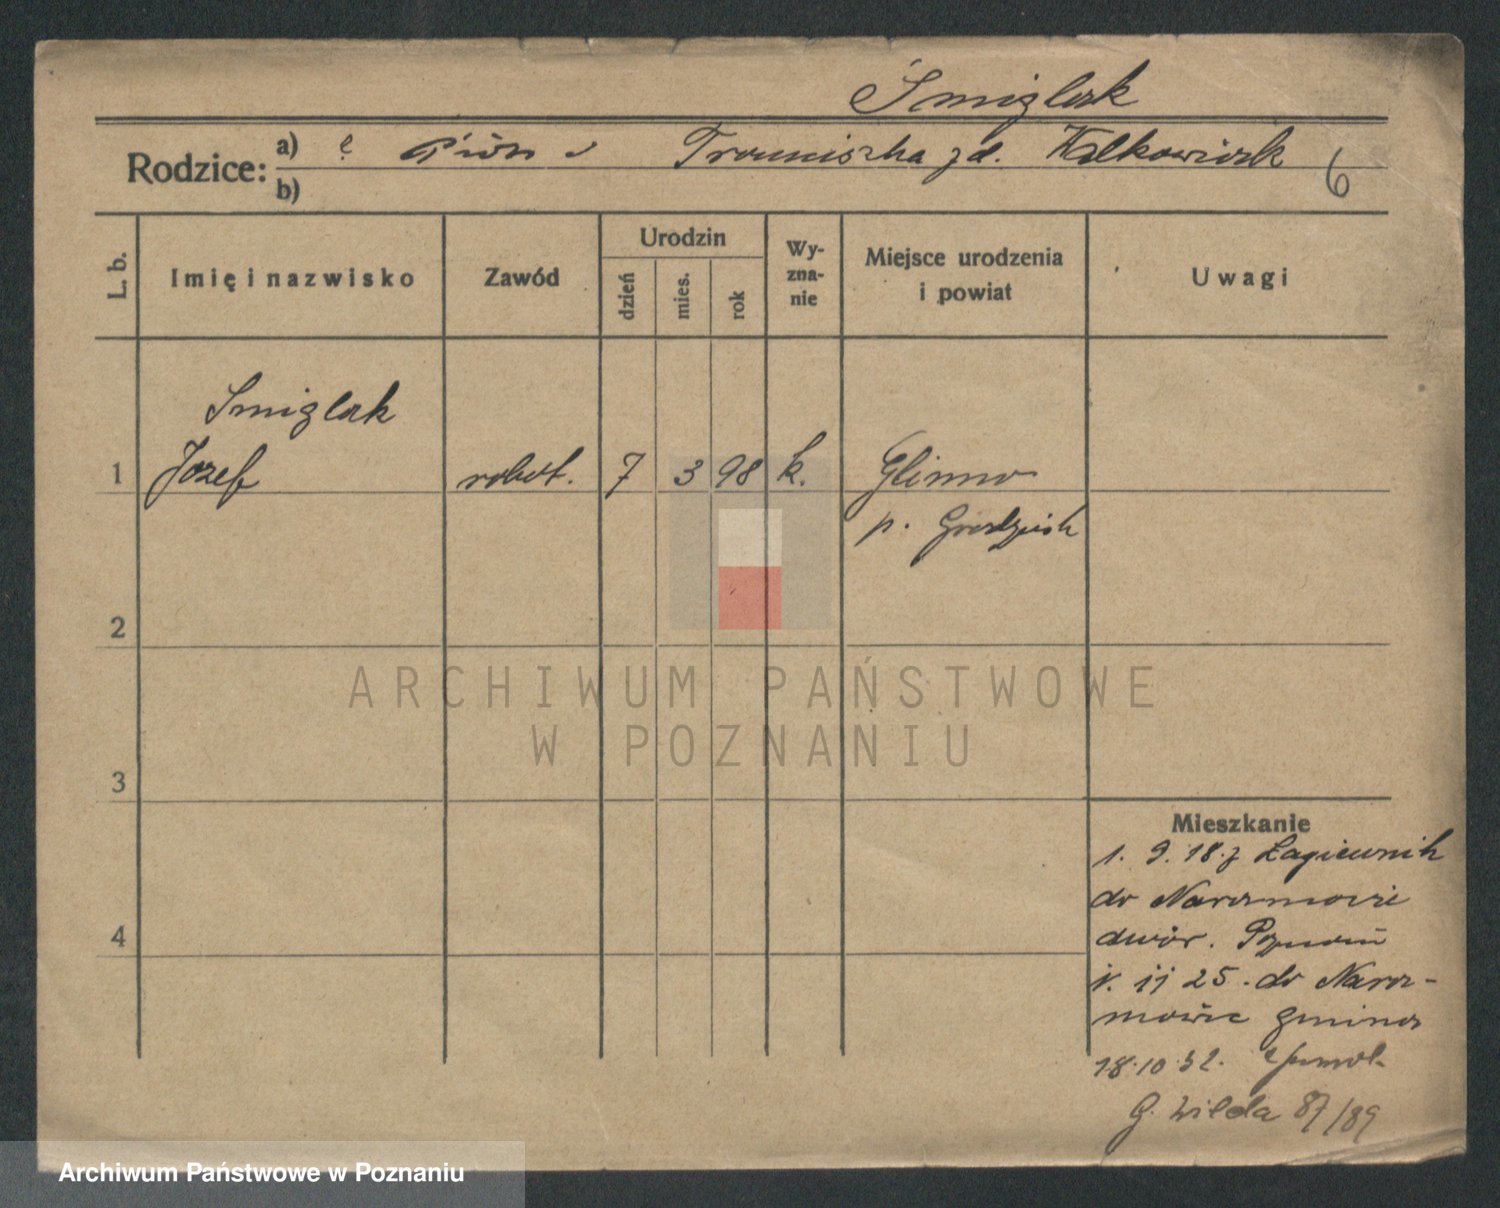 Śmiglak
Rodzice: a) Piotr i Franciszka z d. Kalkowiak
b)
6
L. b.
Imię i nazwisko
Zawód
Urodzin
dzień
mies.
rok
Wy-
zna-
nie
Miejsce urodzenia
i powiat
Uwagi
Śmiglak
1 Józef robot. 7 3 98 k. Glinno
p. Grodzisk
2
3
4
Mieszkanie
1. 9. 18. z Łagiewnik
do Naramowic
dwór. Poznań
1. 11 25. do Nara-
mowic gmina
18.10.32.
G. Wilda 87/89
ARCHIWUM PAŃSTWOWE
W POZNANIU
Archiwum Państwowe w Poznaniu